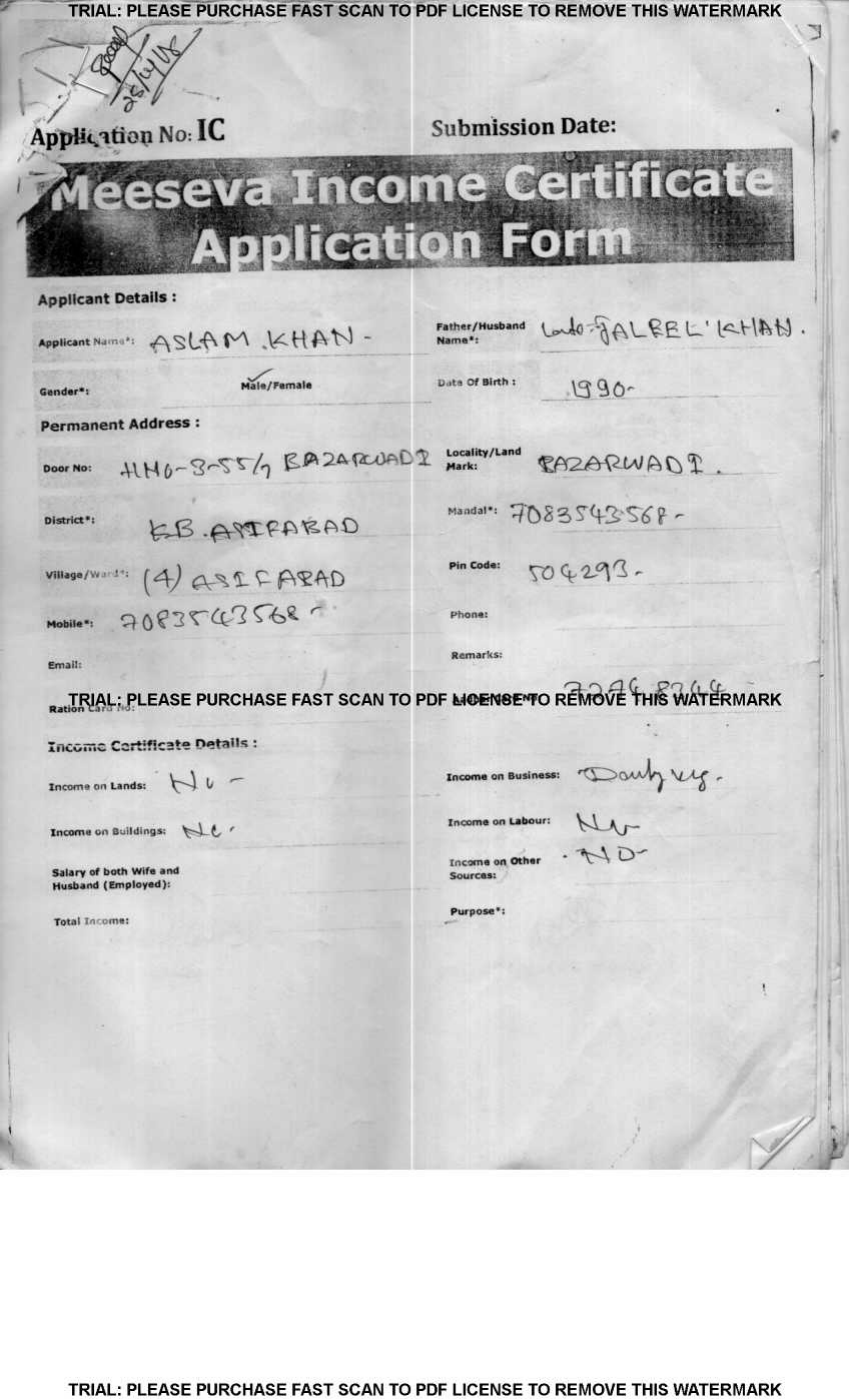 TRIAL: PLEASE PURCHASE FAST SCAN TO PDF LICENSE TO REMOVE THIS WATERMARK
Application No: IC Submission Date:
Meeseva Income Certificate
Application Form
Applicant Details :
Applicant Name*: ASLAM KHAN - Father/Husband Name*: KHAN.
Gender*: Male/Female Date Of Birth : 1990-
Permanent Address :
Door No: BAZARWADI Locality/Land Mark: BAZARWADI.
District*: KB. ASIFABAD Mandal*: 7083543568-
Village/Ward*: (4) ASIFABAD Pin Code: 504293-
Mobile*: 7083543568- Phone:
Email: Remarks:
TRIAL: PLEASE PURCHASE FAST SCAN TO PDF LICENSE TO REMOVE THIS WATERMARK
Ration Card No:
Income Certificate Details :
Income on Lands: No - Income on Business:
Income on Buildings: No Income on Labour: No
Salary of both Wife and Husband (Employed): Income on Other Sources: NO-
Total Income: Purpose*:
TRIAL: PLEASE PURCHASE FAST SCAN TO PDF LICENSE TO REMOVE THIS WATERMARK